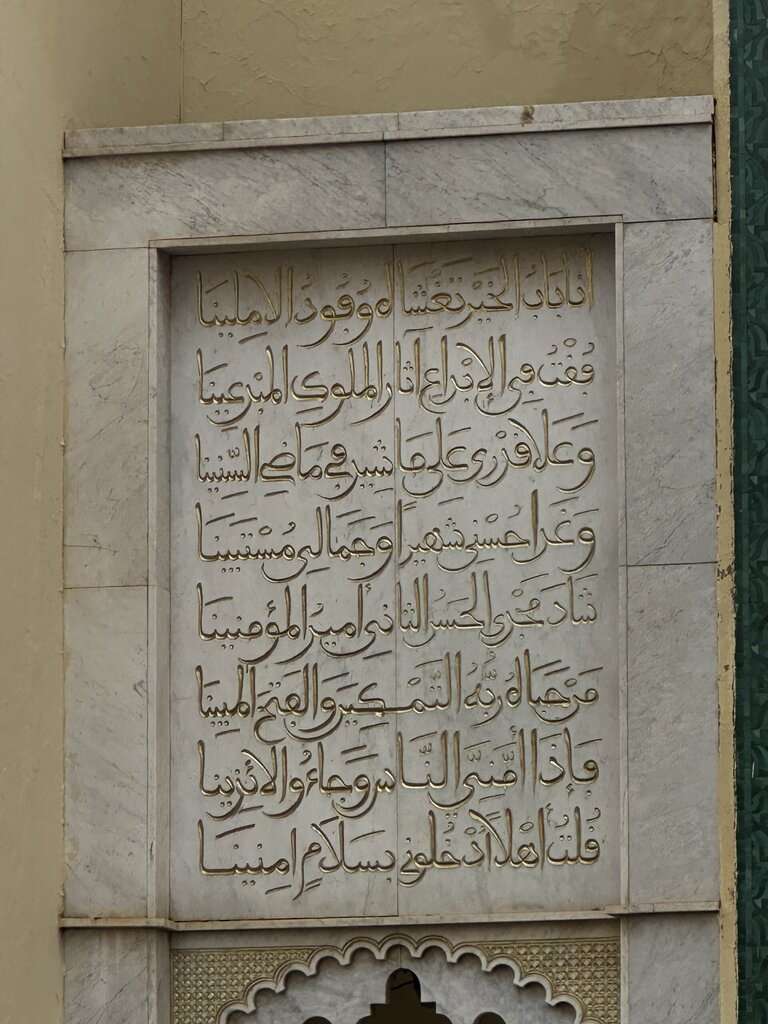 أنا باب الخير تغشاه وفود الآملينا
فُقْتُ في الإبداع آثار الملوك المبدعينا
وَعَلا قدري على ما شيد في ماضي السِّنينا
وَغَدا حسني شهيراً وَجَمالي مُسْتَبينا
شاد مجدي الحسن الثاني أمير المؤمنينا
مَن حباه ربُّه التَّمكين والفتح المبينا
وَإذا أمَّنِيَ النَّاس وَجاءُوا لائِذينا
قُلتُ أهْلاً اُدْخُلوني بسلامٍ آمنينا